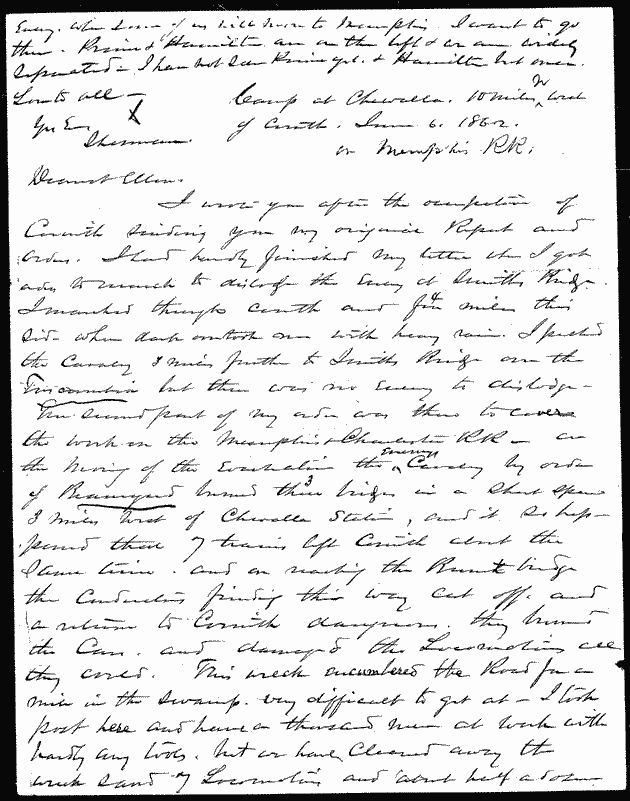 Enemy. When some of us will move to Memphis. I want to go
there. Prime & Hamilton are on the left & we are widely
separated. I have not seen Prime yet. & Hamilton but once.
Love to all —
Yrs Ever
Sherman
Camp at Chewalla. 10 miles N west
of Corinth. June 6. 1862.
on Memphis RR.
Dearest Ellen.
I wrote you after the occupation of
Corinth sending you my original Report and
orders. I had hardly finished my letter when I got
orders to march to dislodge the Enemy at Smiths Bridge.
I marched through Corinth and four miles this
side when dark overtook me with heavy rain. I pushed
the Cavalry 3 miles further to Smiths Bridge over the
Tuscumbia but there was no Enemy to dislodge —
The second part of my order was then to cover
the work on the Memphis & Charleston RR — on
the Morning of the Evacuation the Enemys Cavalry by order
of Beauregard burned three 3 bridges in a short space
3 miles West of Chewalla Station, and it so hap-
pened that 7 trains left Corinth about the
same time. and on reaching the Burnt bridge
the Conductors finding this way cut off. and
a return to Corinth dangerous. they burned
the Cars. and damaged the Locomotives all
they could. This wreck encumbered the Road for a
mile in the swamp. very difficult to get at — I took
post here and have a thousand men at work with
hardly any tools. but we have cleared away the
wreck saved 7 Locomotives and about half a dozen